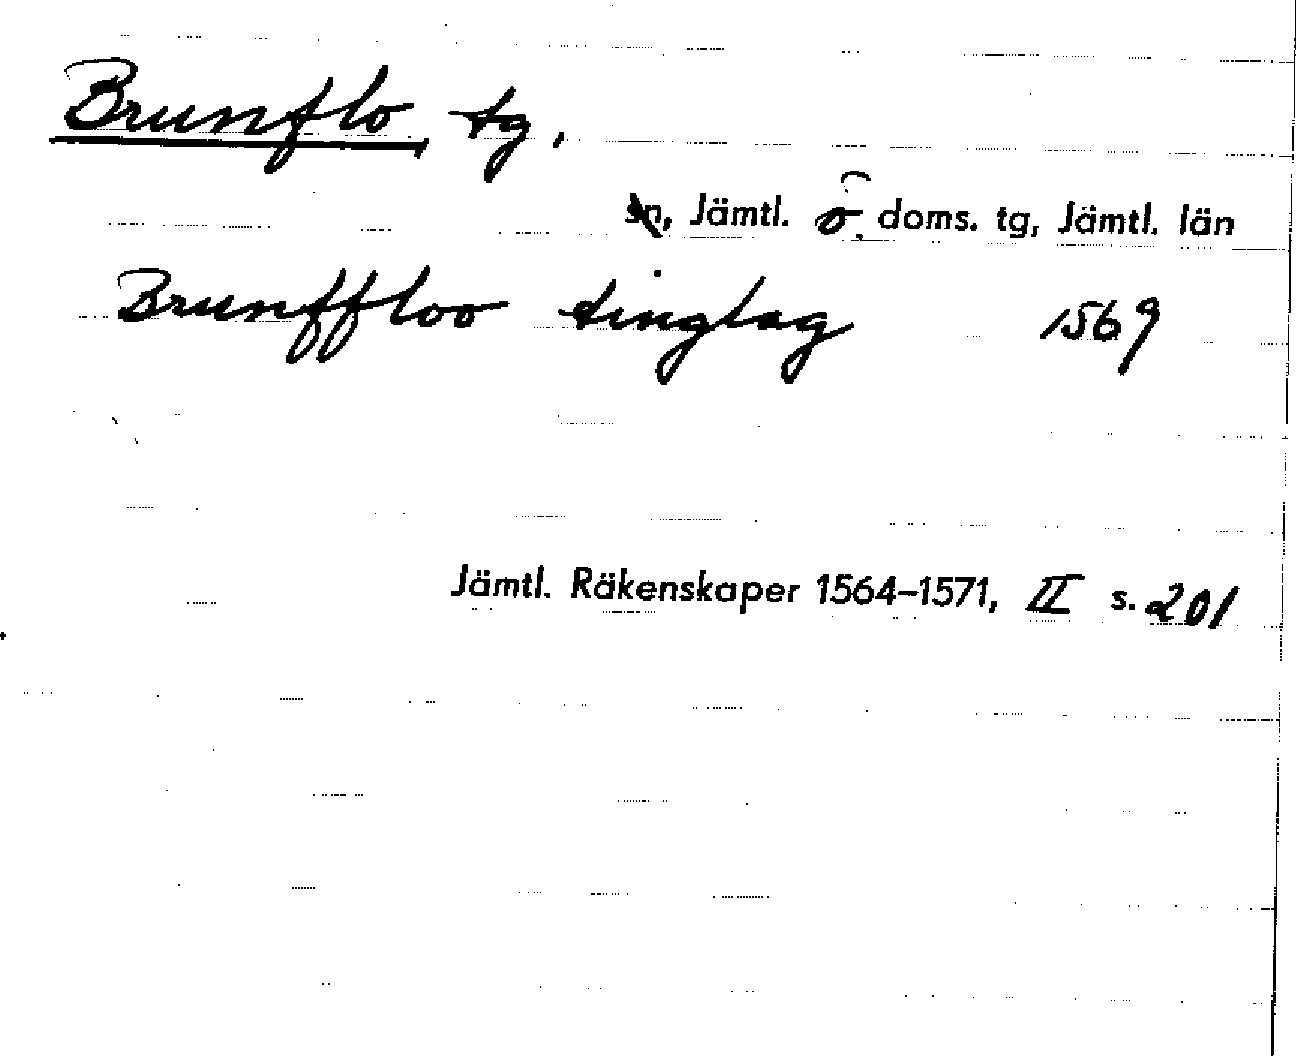 Brunflo, tg.
sn, Jämtl. ö. doms. tg, Jämtl. län
Brunffloo tinglag 1569
Jämtl. Räkenskaper 1564–1571, II s. 201